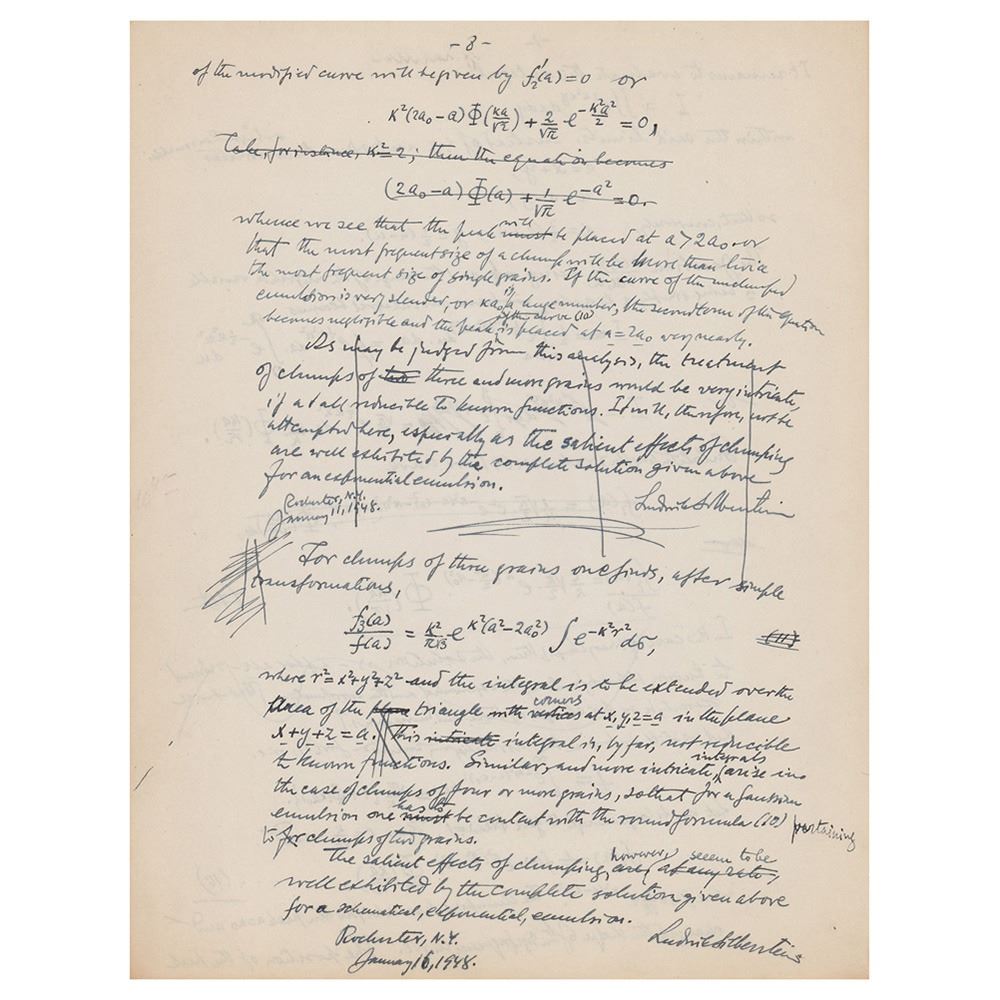 - 8 -
of the modified curve will be given by f₂'(a) = 0 or
κ²(2a₀ - a) Φ(κa/√2) + 2/√π e^(-κ²a²/2) = 0,
Take, for instance, κ² = 2; then the equation becomes
(2a₀ - a) Φ(a) + 1/√π e^(-a²) = 0.
whence we see that the peak must will be placed at a > 2a₀ or
that the most frequent size of a clump will be more than twice
the most frequent size of single grains. If the curve of the unclumped
emulsion is very slender, or κa₀ is a huge number, the second term of this equation
becomes negligible and the peak of the curve (10) is placed at a = 2a₀ very nearly.
As may be judged from this analysis, the treatment
of clumps of two three and more grains would be very intricate,
if at all reducible to known functions. It will, therefore, not be
attempted here, especially as the salient effects of clumping
are well exhibited by the complete solution given above
for an exponential emulsion.
Rochester, N.Y.
January 11, 1948.
Ludwik Silberstein
For clumps of three grains one finds, after simple
transformations,
f₃(a)/f(a) = κ²/π√3 e^(κ²(a² - 2a₀²)) ∫ e^(-κ²r²) dσ, (11)
where r² = x² + y² + z² and the integral is to be extended over the
area of the plane triangle with vertices corners at x, y, z = a in the plane
x + y + z = a. This intricate integral is, by far, not reducible
to known functions. Similar, and more intricate, integrals arise in
the case of clumps of four or more grains, so that for a Gaussian
emulsion one must has to be content with the round formula (10) pertaining
to for clumps of two grains.
The salient effects of clumping, are, at any rate, however, seem to be
well exhibited by the complete solution given above
for a schematical, exponential, emulsion.
Rochester, N.Y.
January 15, 1948.
Ludwik Silberstein